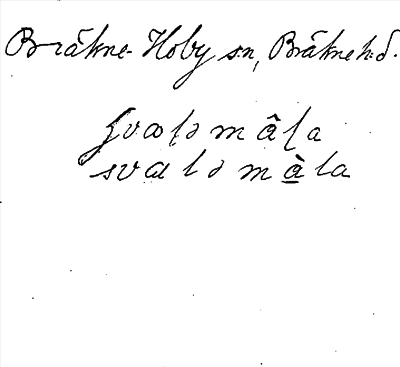 Bräkne-Hoby sn, Bräkne hd.
svaləmåla
svaləmåla